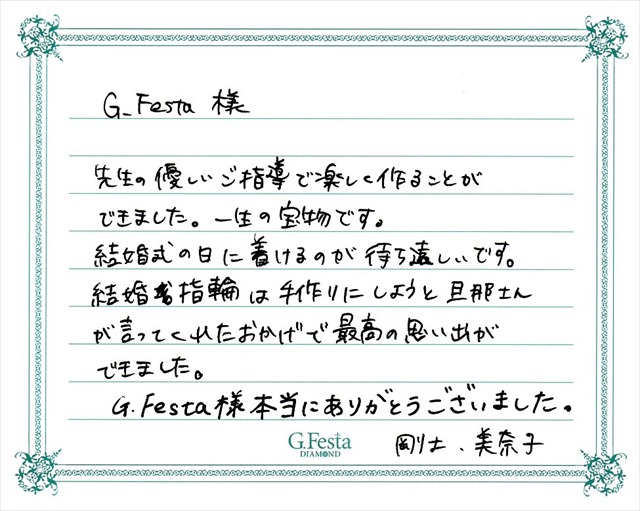 G.Festa 様
先生の優しいご指導で楽しく作ることが
できました。一生の宝物です。
結婚式の日に着けるのが待ち遠しいです。
結婚指輪は手作りにしようと旦那さん
が言ってくれたおかげで最高の思い出が
できました。
G.Festa様本当にありがとうございました。
G.Festa
DIAMOND
剛士、美奈子